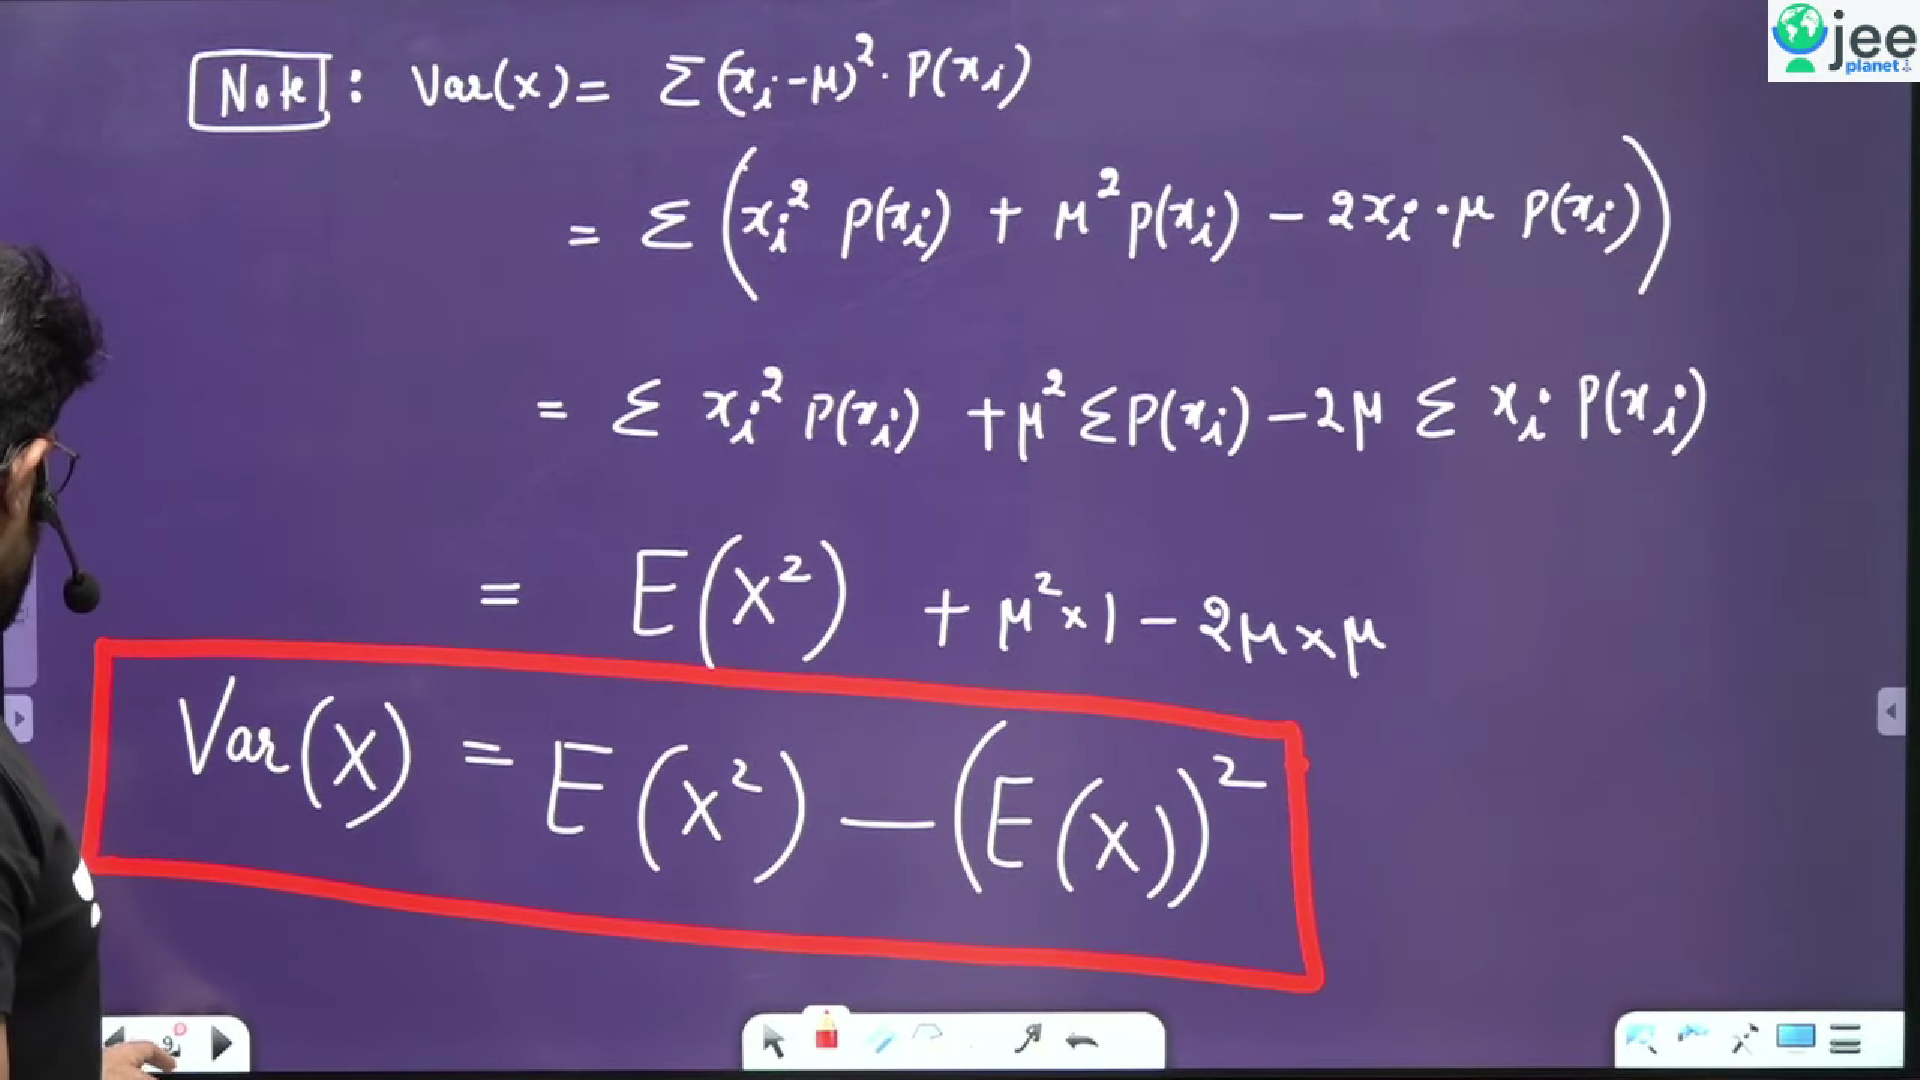 jee
planet
Note : Var(x) = Σ(xᵢ-μ)² · P(xᵢ)
= Σ (xᵢ² P(xᵢ) + μ² P(xᵢ) - 2xᵢ·μ P(xᵢ))
= Σ xᵢ² P(xᵢ) + μ² Σ P(xᵢ) - 2μ Σ xᵢ P(xᵢ)
= E(X²) + μ² × 1 - 2μ × μ
Var(X) = E(X²) - (E(X))²
9